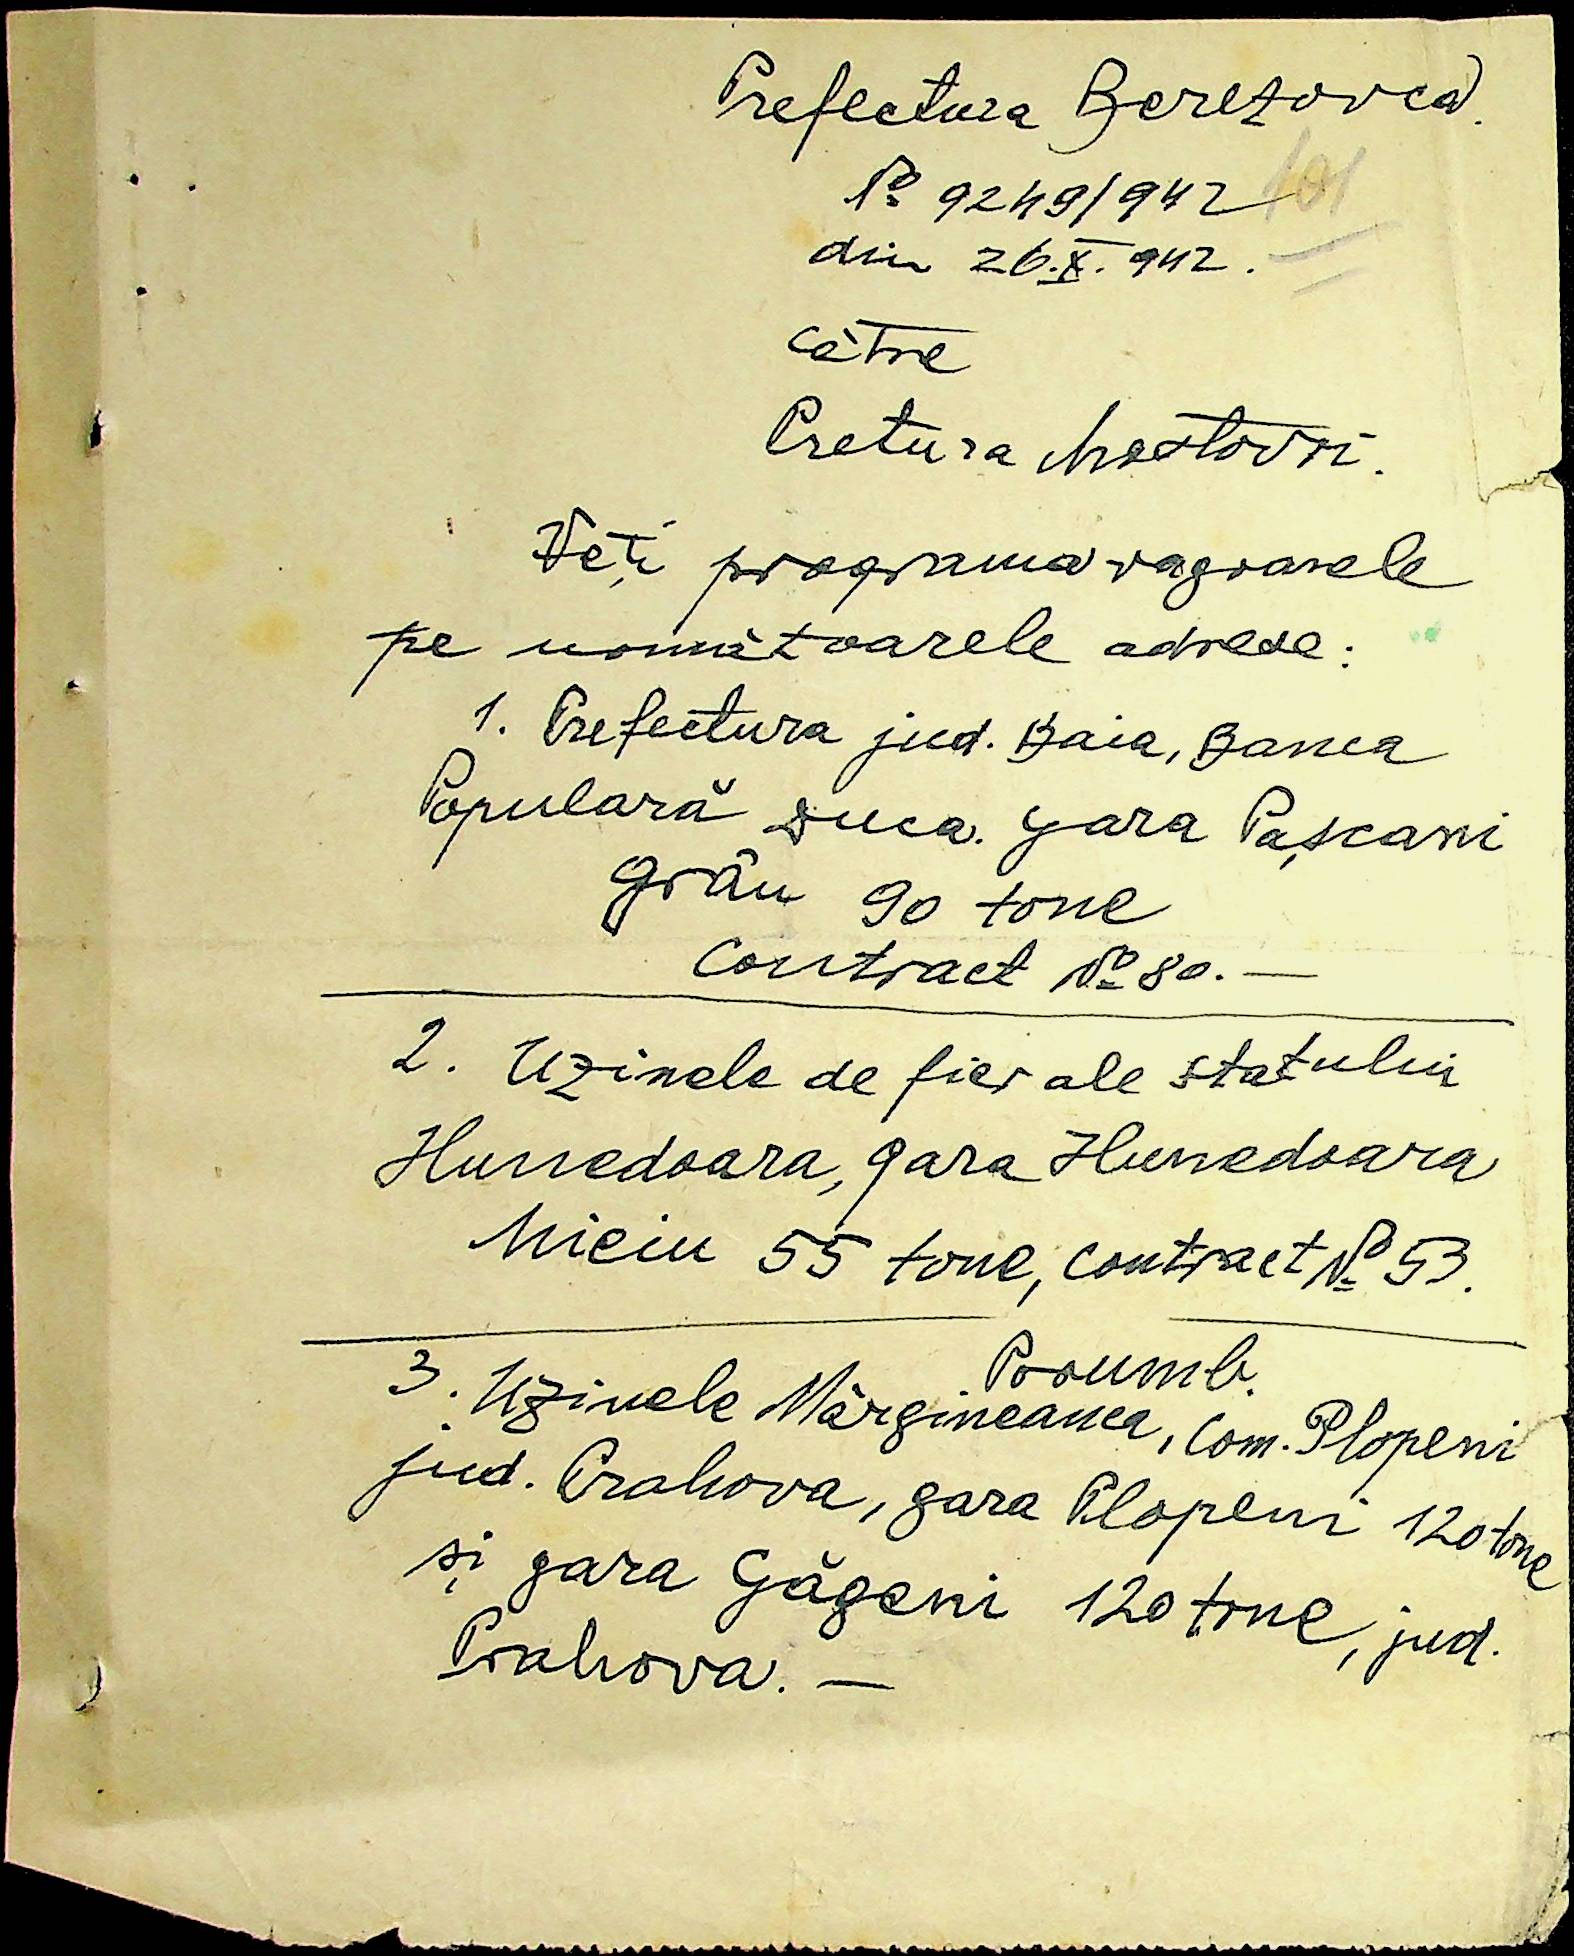 Prefectura Berezovca.
№ 9249/942
din 26.X.942.
101
către
Pretura Mostovoi.
Veți programa vagoanele
pe următoarele adrese:
1. Prefectura jud. Baia, Banca
Populară Duca. gara Pașcani
grâu 90 tone
Contract № 80. —
2. Uzinele de fier ale statului
Hunedoara, gara Hunedoara
Meiu 55 tone, contract № 53.
Porumb.
3. Uzinele Mărgineanca, Com. Plopeni
jud. Prahova, gara Plopeni 120 tone
și gara Găgeni 120 tone, jud.
Prahova. —